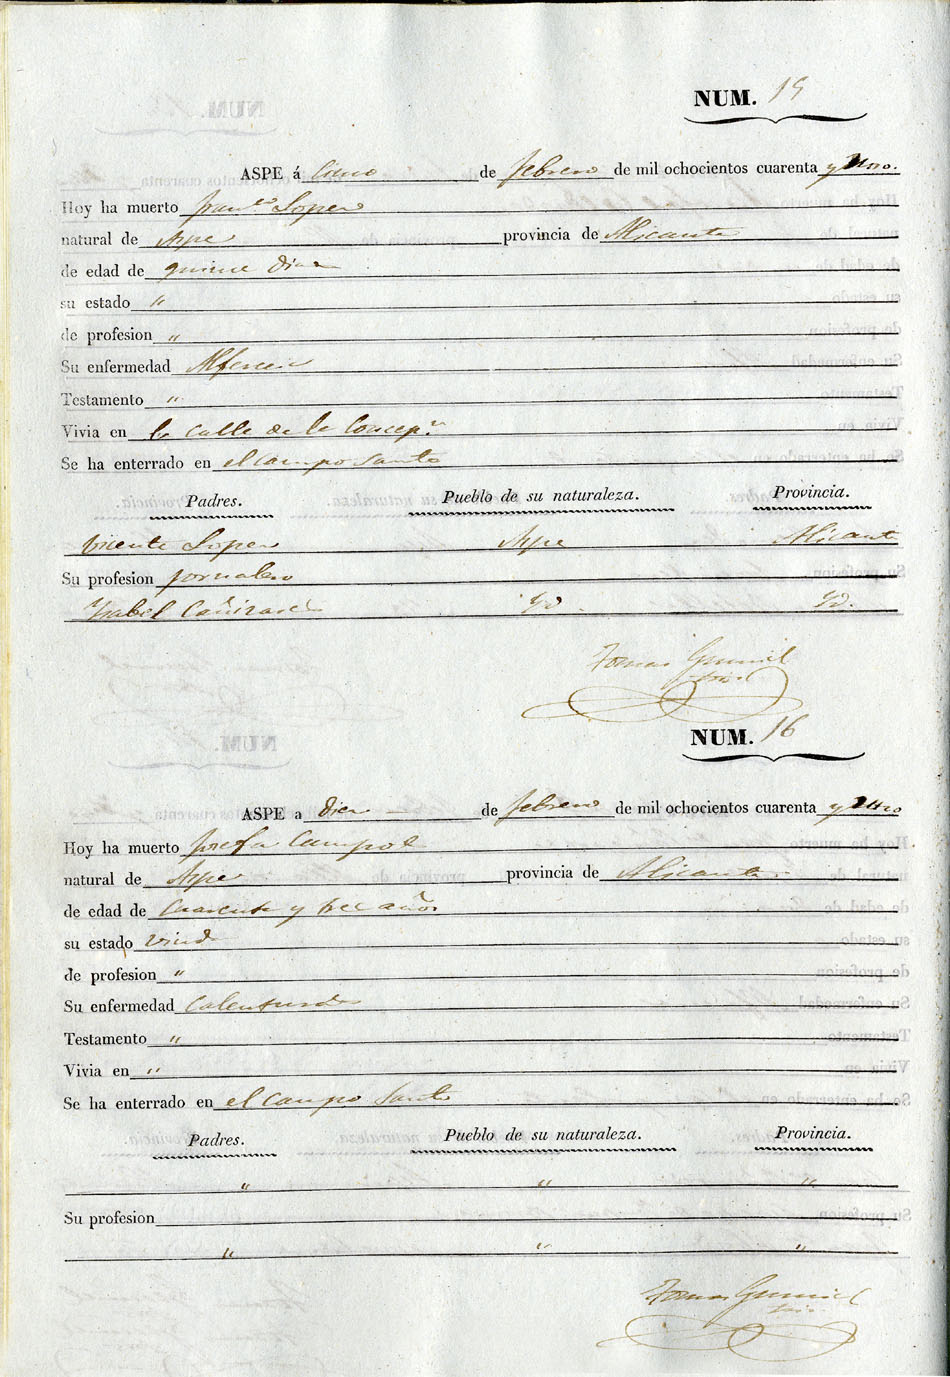 NUM. 15
ASPE á Cinco de febrero de mil ochocientos cuarenta y Uno.
Hoy ha muerto Fran.co Lopez
natural de Aspe provincia de Alicante
de edad de quince dias
su estado "
de profesion "
Su enfermedad Alferecia
Testamento "
Vivia en la calle de la Concep.n
Se ha enterrado en el campo Santo
Padres. Pueblo de su naturaleza. Provincia.
Vicente Lopez Aspe Alicante
Su profesion Jornalero
Ysabel Yd. Yd.
Tomas
NUM. 16
ASPE a Diez de febrero de mil ochocientos cuarenta y Uno
Hoy ha muerto Josefa
natural de Aspe provincia de Alicante
de edad de cuarenta y tres años
su estado viuda
de profesion "
Su enfermedad Calenturas
Testamento "
Vivia en "
Se ha enterrado en el campo Santo
Padres. Pueblo de su naturaleza. Provincia.
" " "
Su profesion
" " "
Tomas